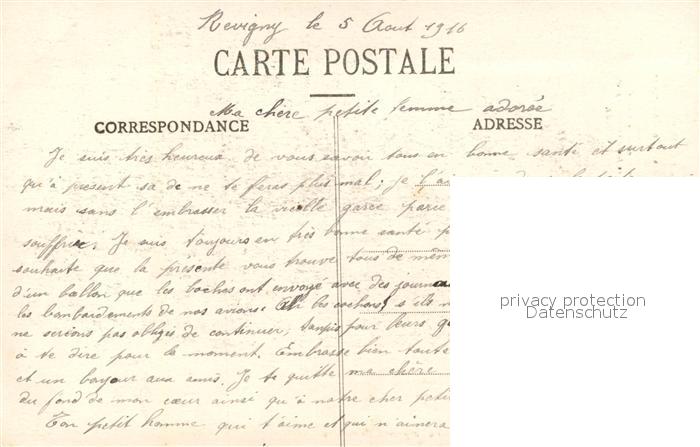 Revigny le 5 Aout 1916
CARTE POSTALE
Ma chère petite femme adorée
CORRESPONDANCE
ADRESSE
Je suis très heureux de vous savoir tous en bonne santé et surtout
qu'à présent sa de ne te feras plus mal. je l'
mais sans l'embrasser la vieille garce parce
souffrir. Je suis toujours en très bonne santé
souhaite que la présente vous trouve tous de mêm
d'un ballon que les boches ont envoyé avec des journau
les bombardements de nos avions. Ah les cochons! s'ils n
ne serions pas obligés de continuer, tanpis pour leurs g
à te dire pour le moment. Embrasse bien toute
et un bonjour aux amis. Je te quitte ma chère
du fond de mon cœur ainsi qu'à notre cher petit
Ton petit homme qui t'aime et qui n'aimera
privacy protection
Datenschutz